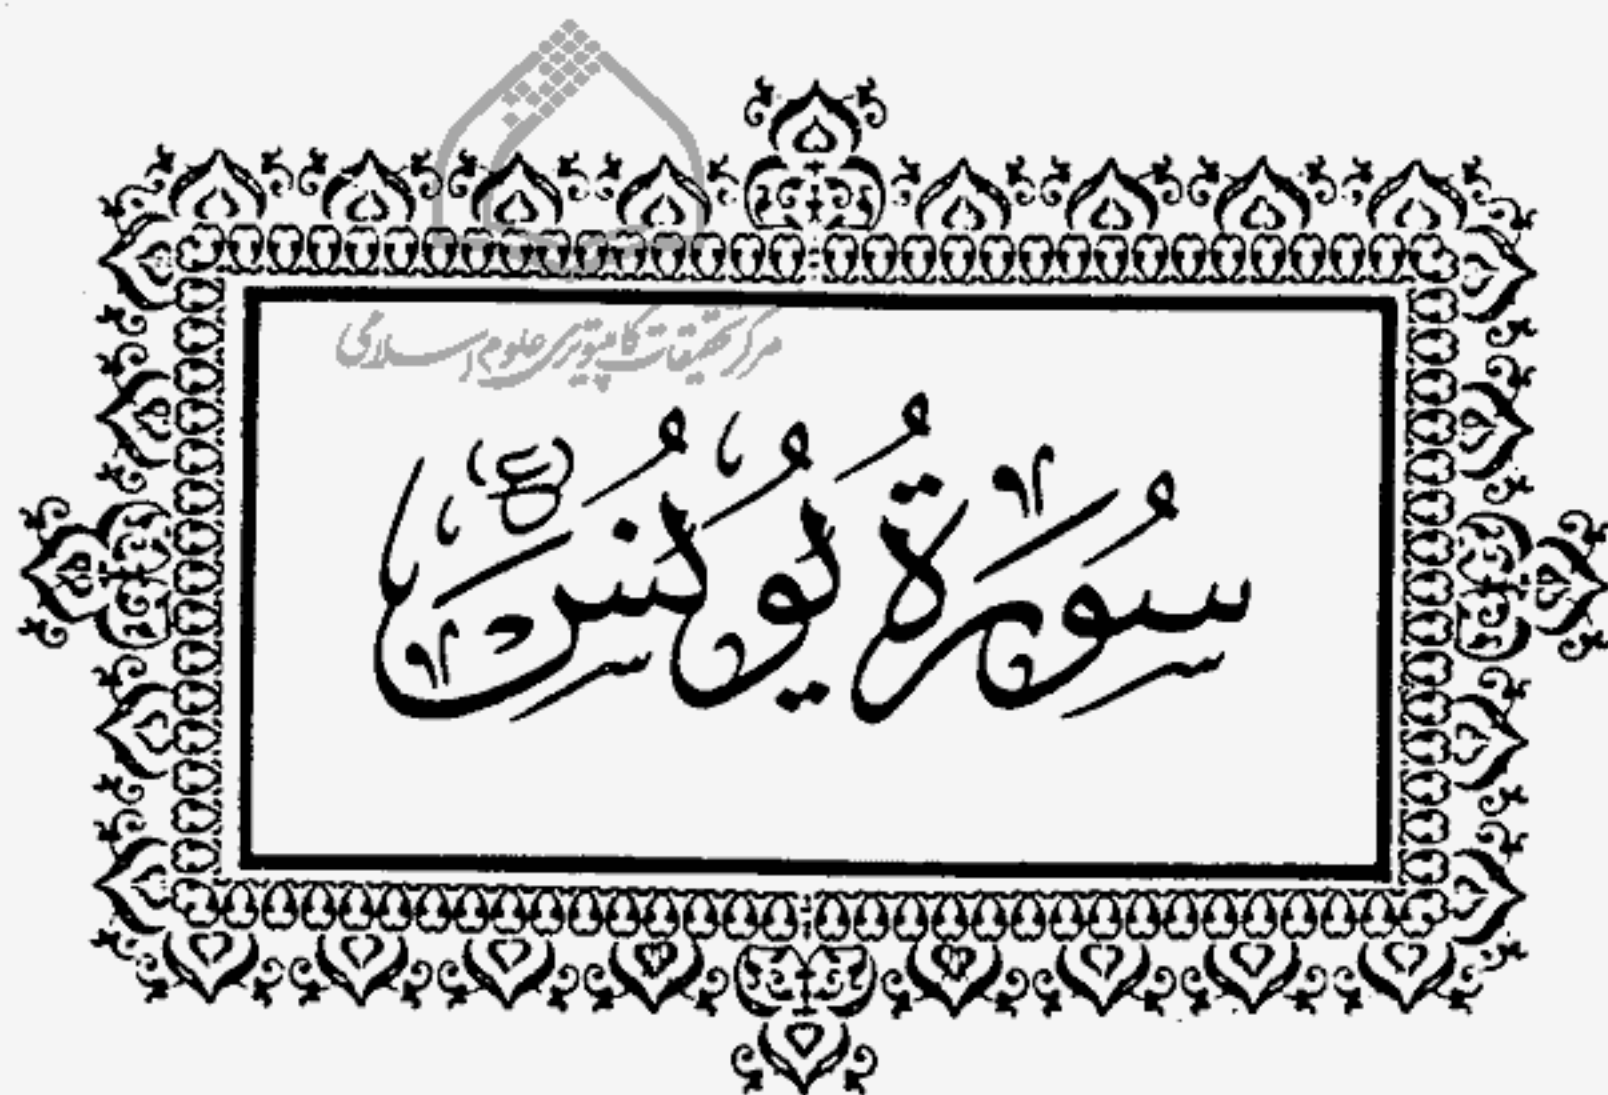 مركز تحقیقات كامپیوتری علوم اسلامی
سُورَةُ يُونُسَ (ع)